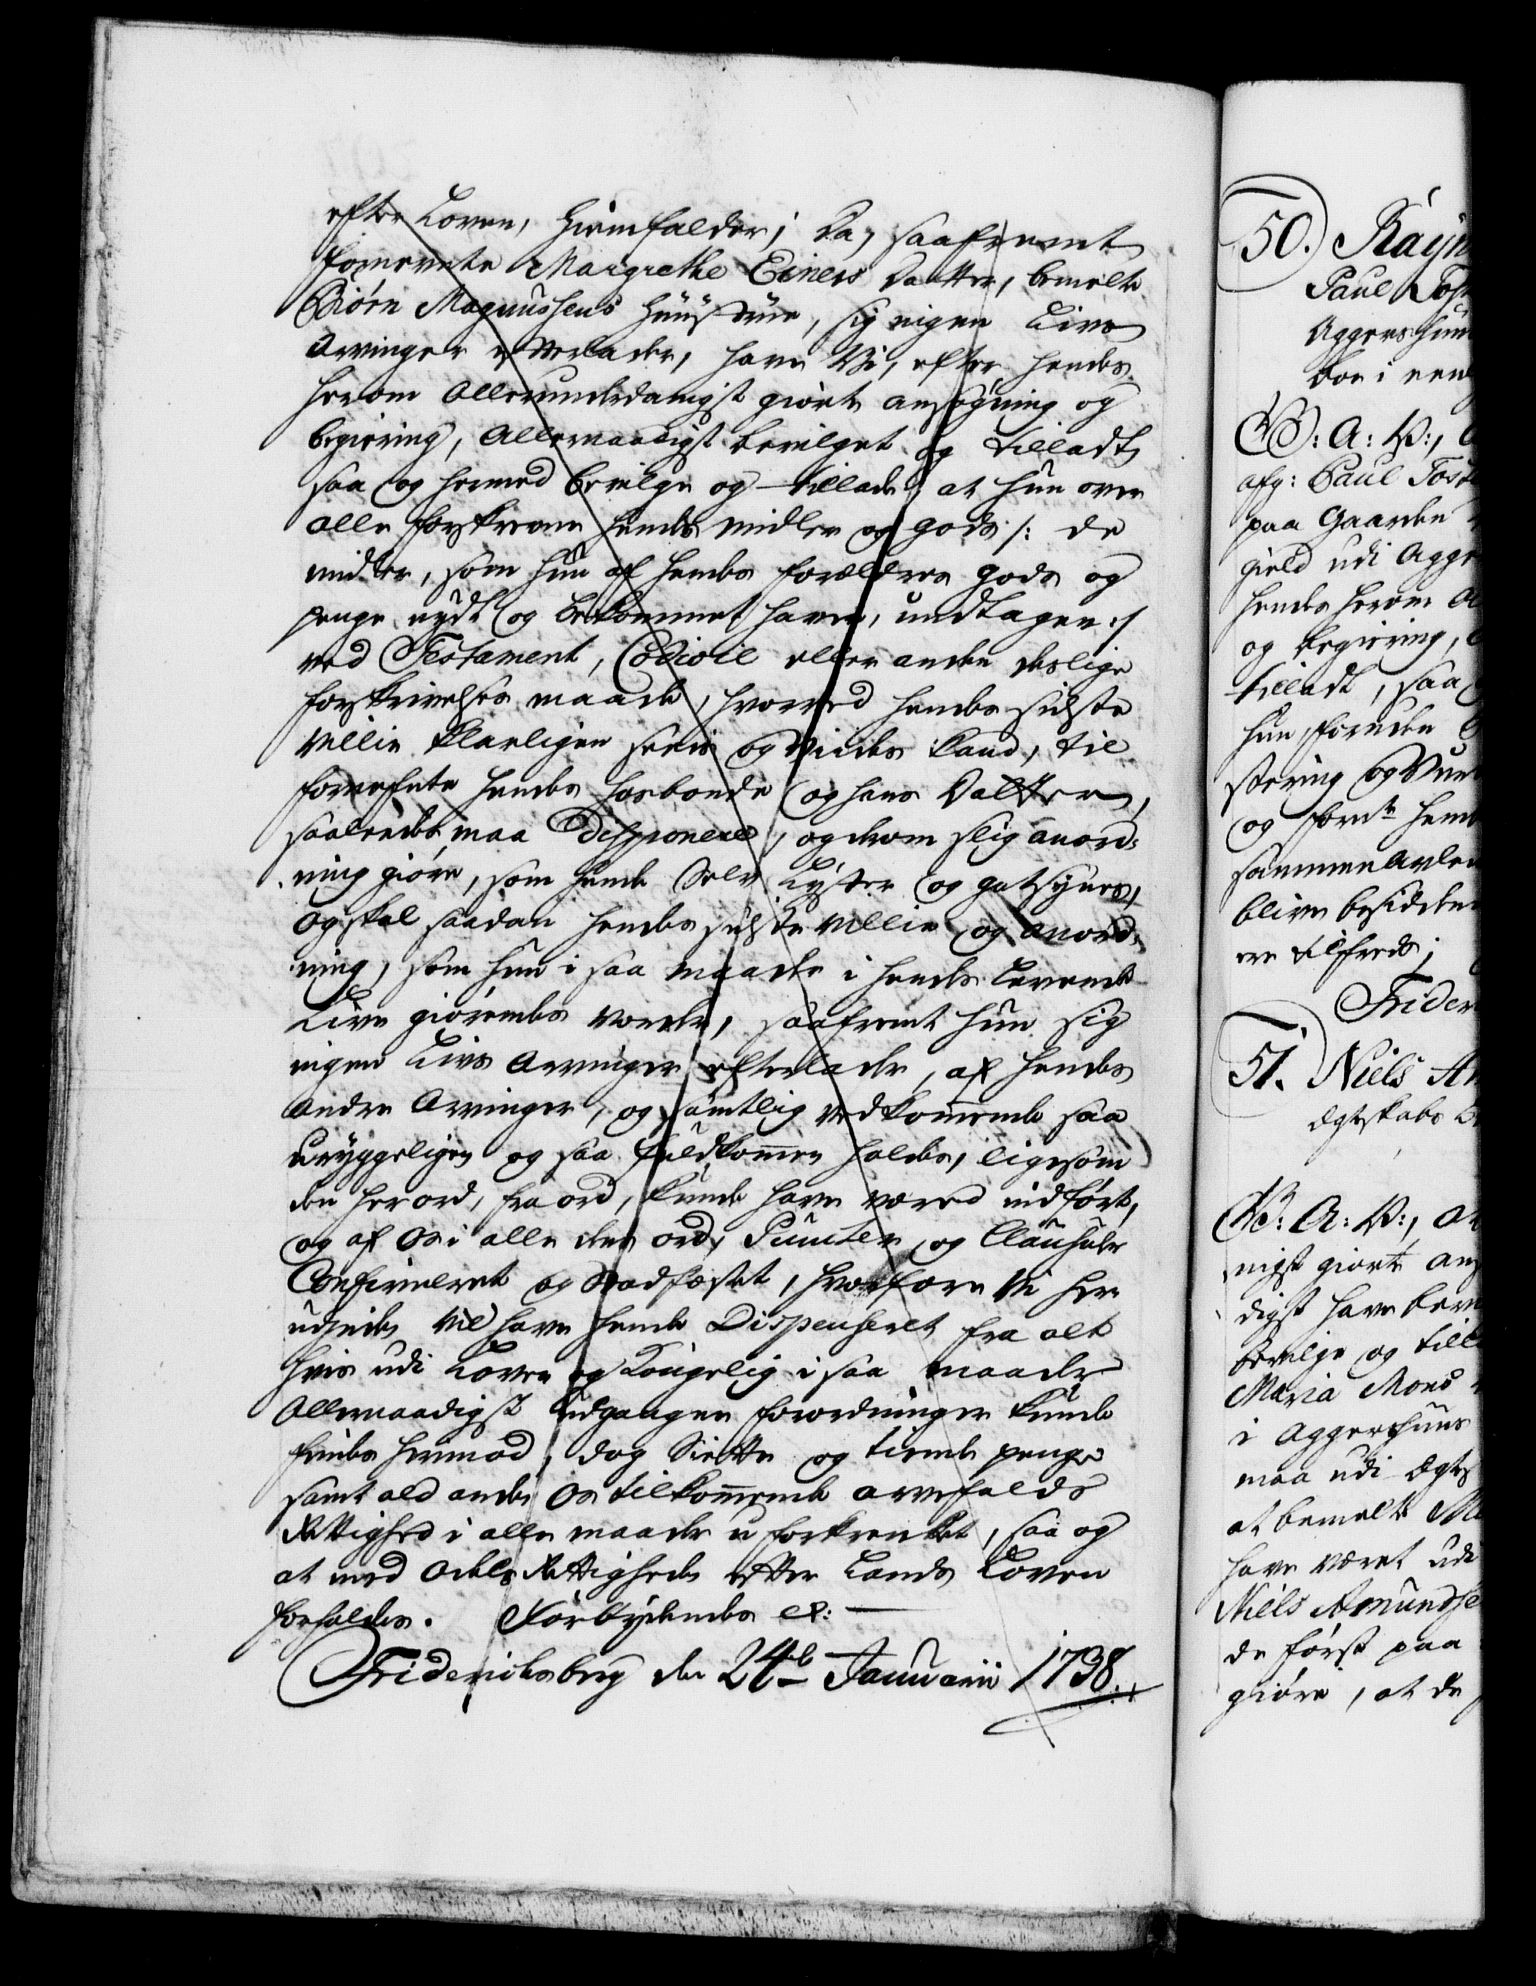 efter Loven, hiemfalder; Da, saafremt
fornevnte Margrethe Einers Datter, bemelte
Biörn Magnussens Huustrüe, sig ingen Livs
Arvinger efterlader, have Vi, efter hendes
herom allerunderdanigst giorte ansøgning og
begiering, Allernaadigst bevilget og tilladt,
saa og hermed bevilge og tillade, at hun over
alle forskrevne hendes midler og gods /: de
midler, som hun af hendes forældres gods og
penge nydt og bekommet haver, undtagen :/
ved Testament, Codicil eller anden deslige
forskrivelses maade, hvorved hendes sidste
villie klarligen sees og vides kand, til
forrefnte hendes hosbonde og hans Datter,
saaledes maa disponere, og derom slig anord-
ning giøre, som hende Selv Lyster og gotsynes,
og skal saadan hendes sidste villie og anord-
ning, som hun i saa maade i hendes Levende
Live giørendes vorder, saafremt hun sig
ingen Livs Arvinger efterlader, af hendes
andre Arvinger, og samtlig vedkommende saa
uryggeligen og saa fuldkommen holdes, ligesom
den her ord, fra ord, kunde have væred indført,
og af Os i alle dens ord, Puncter og Clausuler
Confirmeret og Stadfæstet, hvorfore Vi her-
udinden vil have hende Dispenseret fra alt
hvis udi Loven og Kongelig i saa maader
Allernaadigst udgangen forordninger kunde
findes herimod, dog Siette og tiende penge
samt ald anden Os tilkommende arvefalds
Rettighed i alle maader uforkrenket, saa og
at med Odels Rettigheden efter Lands Loven
forholdes. Forbydendes etc:
Friderichsberg den 24de Januarii 1738.
50. Rayn
Paul Tost
Aggershuus
boe i uen
V: A: V:,
afg: Paul Tost
paa Gaarden
gield udi Agge
hendes herom al
og begiering,
tilladt, saa
hun, foruden
stering og Vur
og fornte hend
sammen avlede
blive besidden
ere tilfreds;
Frider
51. Niels Am
Egteskabs
V: A: V:, at
nigst giorte ans
digst have bev
bevilge og till
Maria Mons
i Aggershuus
maa udi Egte
at bemelte Ma
have været udi
Niels Amundse
de først paa
giøre, at de